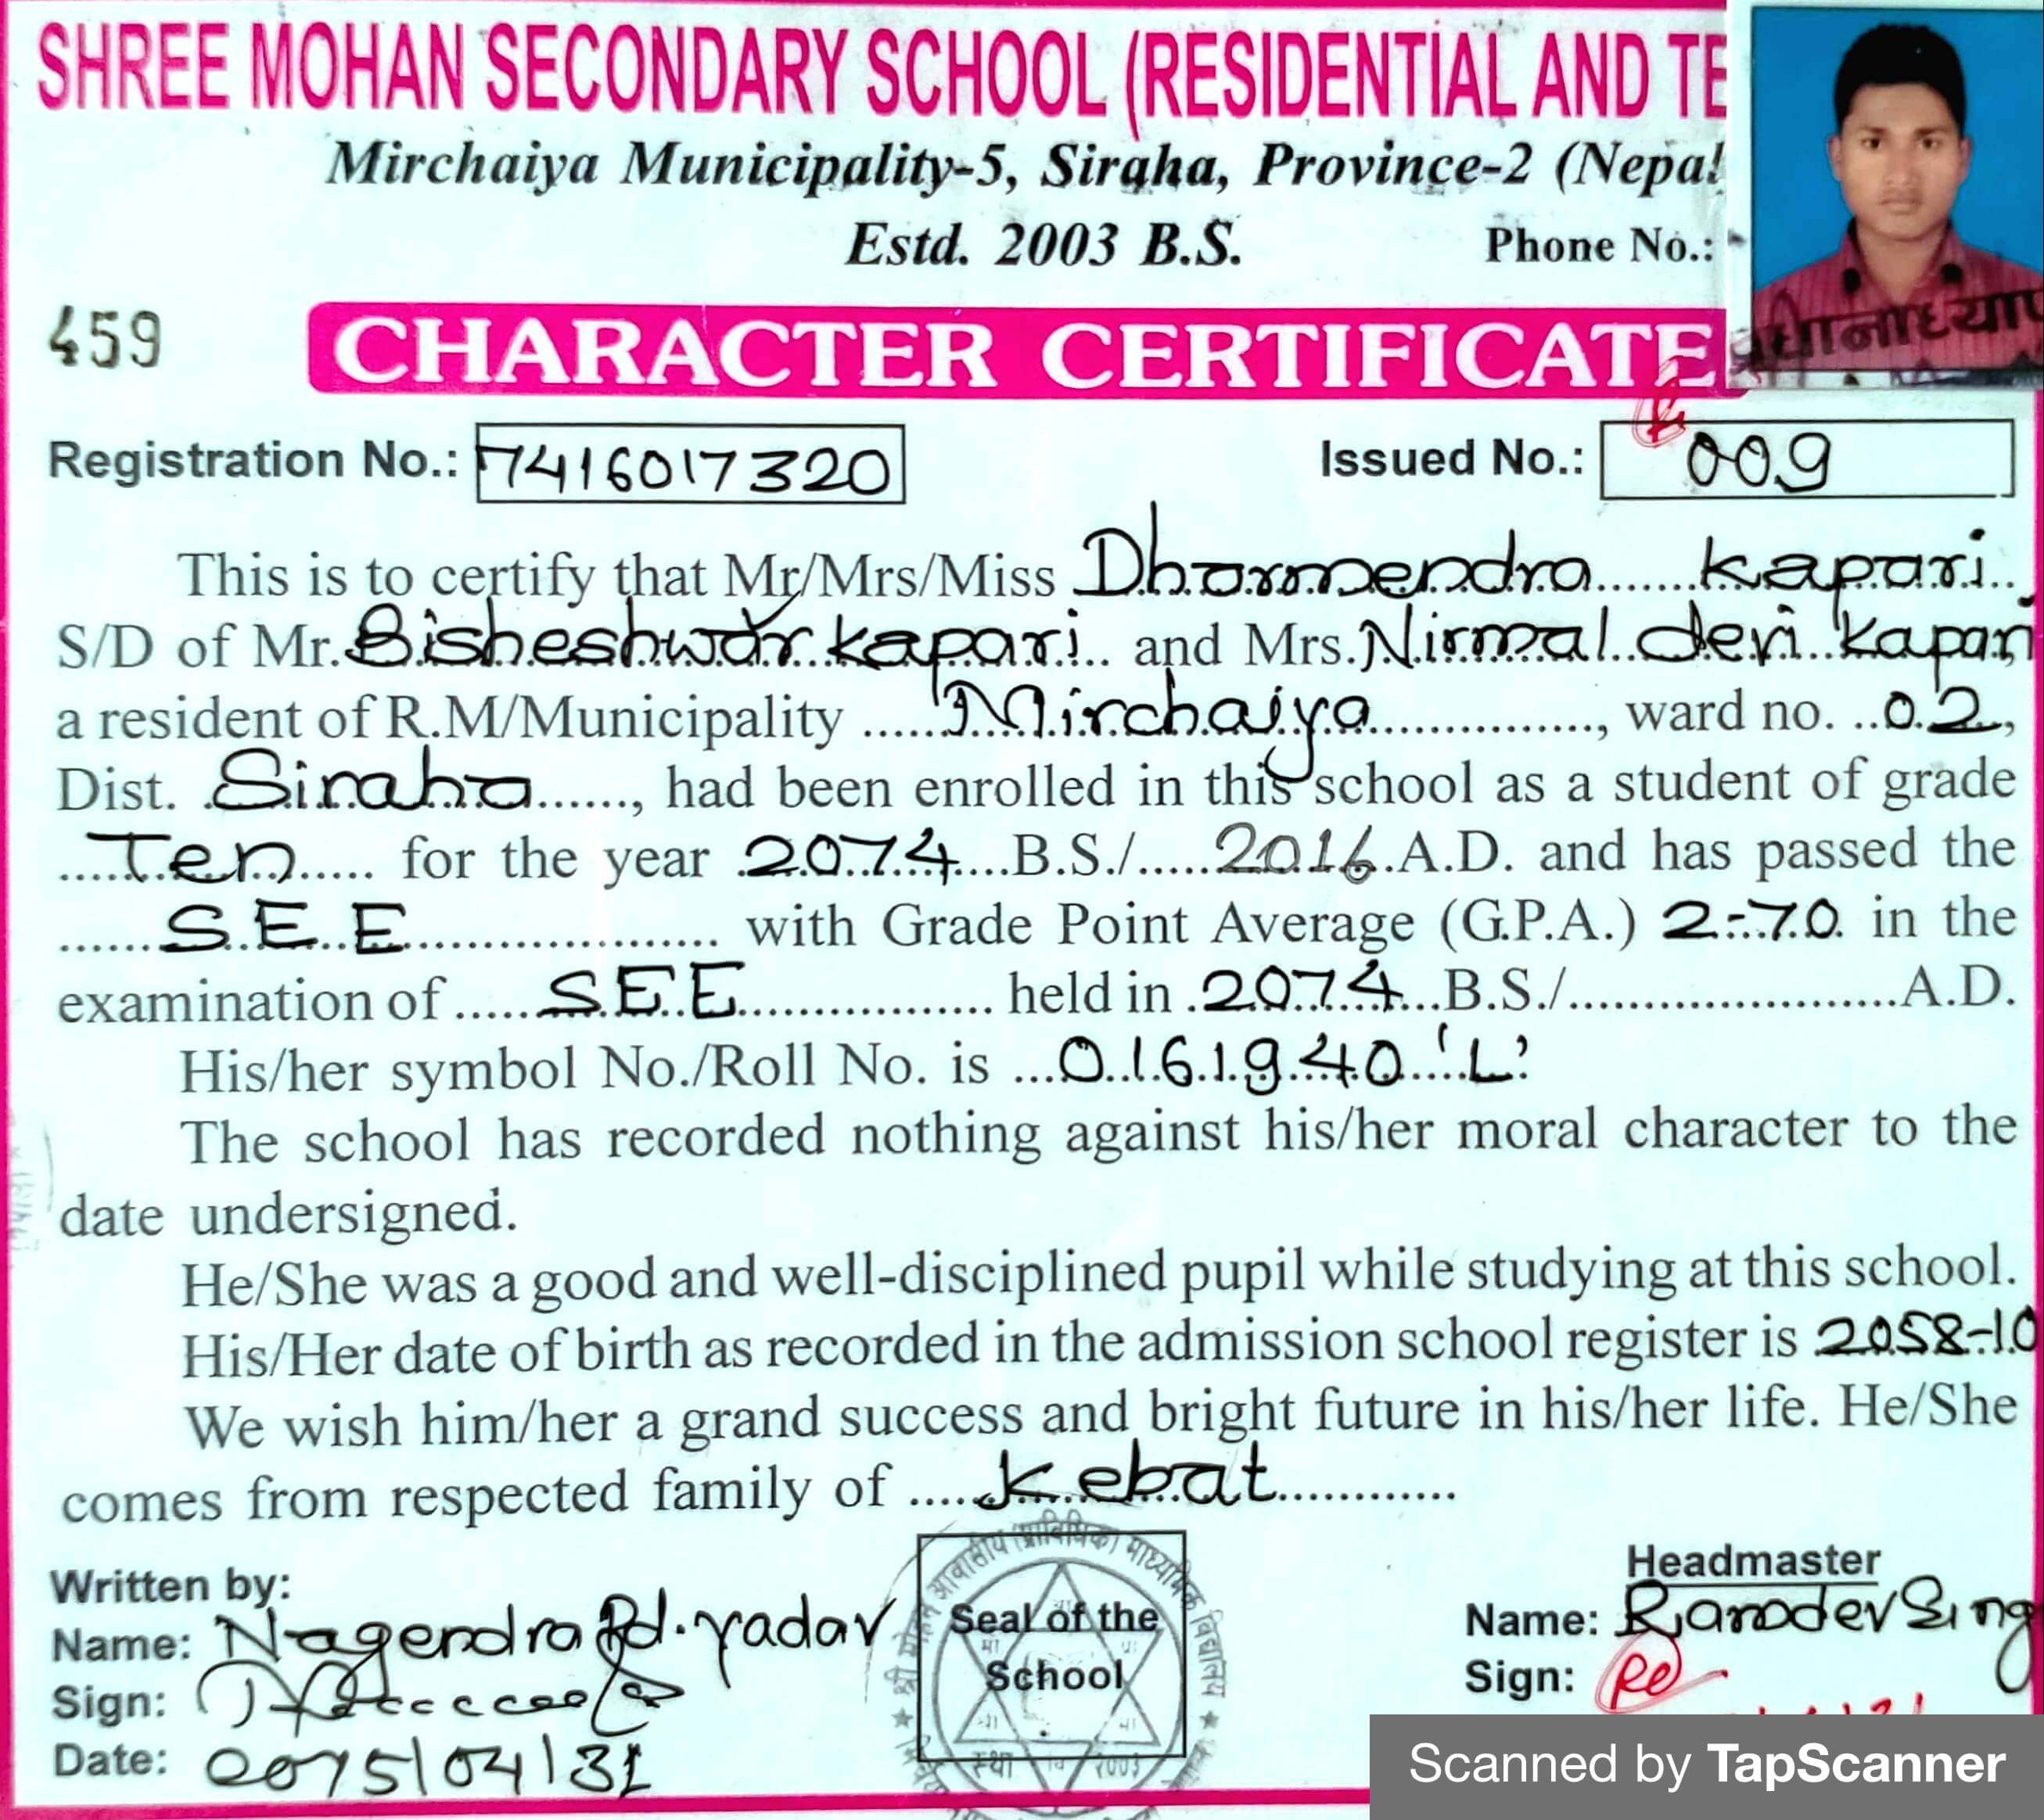 SHREE MOHAN SECONDARY SCHOOL (RESIDENTIAL AND TE
Mirchaiya Municipality-5, Siraha, Province-2 (Nepal
Estd. 2003 B.S. Phone No.:
459 CHARACTER CERTIFICATE
Registration No.: 7416017320 Issued No.: 009
This is to certify that Mr/Mrs/Miss Dharmendra kapari
S/D of Mr. Bisheshwar kapari and Mrs. Nirmal devi kapari
a resident of R.M/Municipality Mirchaiya, ward no. 02,
Dist. Siraha, had been enrolled in this school as a student of grade
Ten for the year 2074 B.S./ 2016 A.D. and has passed the
S.E.E with Grade Point Average (G.P.A.) 2.70 in the
examination of SEE held in 2074 B.S./ A.D.
His/her symbol No./Roll No. is 0161940 'L'
The school has recorded nothing against his/her moral character to the
date undersigned.
He/She was a good and well-disciplined pupil while studying at this school.
His/Her date of birth as recorded in the admission school register is 2058-10
We wish him/her a grand success and bright future in his/her life. He/She
comes from respected family of kebat
Written by: Headmaster
Name: Nagendra Pd. yadav Seal of the School Name: Ramdev Sing
Sign: Sign:
Date: 2075/04/31
Scanned by TapScanner